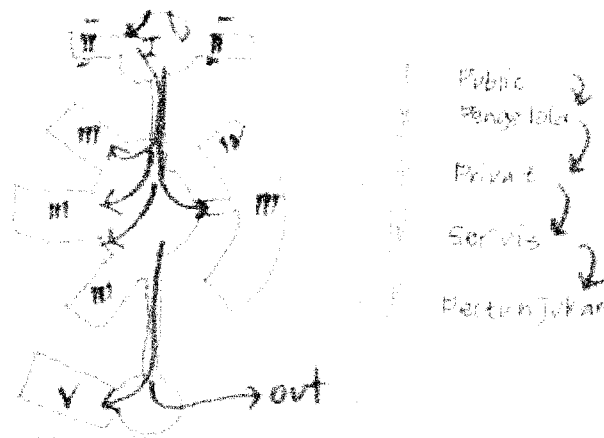 II
II
I
III
IV
III
III
III
V
out
Public
Pengelola
Privat
Servis
Pertunjukan